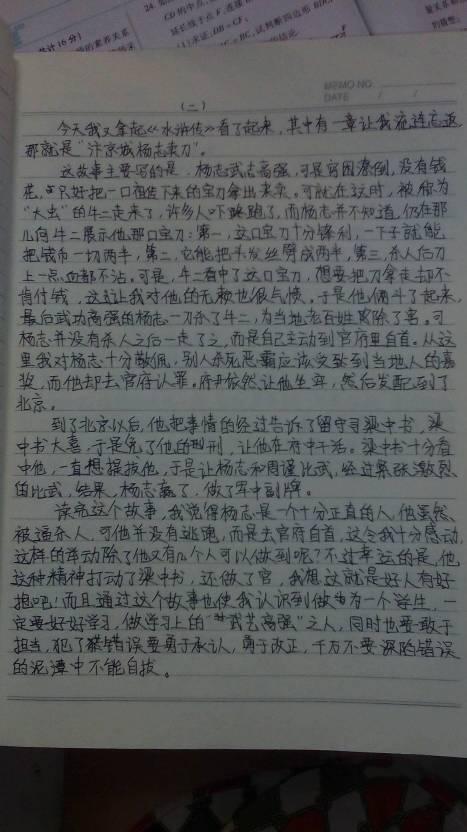 24.
CD的中点,
延长线于点F,连接
(1)求证:DB=CF;
共计16分)
MEMO NO.
DATE / /
(二)
今天我又拿起《水浒传》看了起来,其中有一章让我流连忘返
那就是“汴京城杨志卖刀”。
这故事主要写的是,杨志武志高强,可是穷困潦倒,没有钱
花,只好把一口祖传下来的宝刀拿出来卖。可就在这时,被称为
“大虫”的牛二走来了,许多人吓跑了,而杨志并不知道,仍在那
儿向牛二展示他那口宝刀:第一,这口宝刀十分锋利,一下子就能
把钱币一切两半,第二,它能把头发丝劈成两半,第三,杀人后刀
上一点血都不沾。可是,牛二看中了这口宝刀,想要把刀拿走却不
肯付钱,这让我对他的无赖也很气愤。于是他俩斗了起来,
最后武功高强的杨志一刀杀了牛二,为当地老百姓除了害。可
杨志并没有杀人之后一走了之,而是自己主动到官府里自首。从这
里我对杨志十分敬佩,别人杀死恶霸应该受到当地人的嘉
奖,而他却去官府认罪。府尹依然让他坐牢,然后发配到了
北京。
到了北京以后,他把事情的经过告诉了留守司梁中书,梁
中书大喜,于是免了他的刑,让他在府中干活。梁中书十分看
中他,一直想提拔他,于是让杨志和周谨比武,经过紧张激烈
的比武,结果,杨志赢了,做了军中副牌。
读完这个故事,我觉得杨志是一个十分正直的人,他虽然
被逼杀人,可他并没有逃跑,而是去官府自首,这令我十分感动,
这样的举动除了他又有几个人可以做到呢?不过幸运的是,他
这种精神打动了梁中书,还做了官,我想这就是好人有好
报吧!而且通过这个故事也使我认识到做为一个学生,一
定要好好学习,做学习上的“武艺高强”之人,同时也要敢于
担当,犯了错误要勇于承认,勇于改正,千万不要深陷错误
的泥潭中不能自拔。